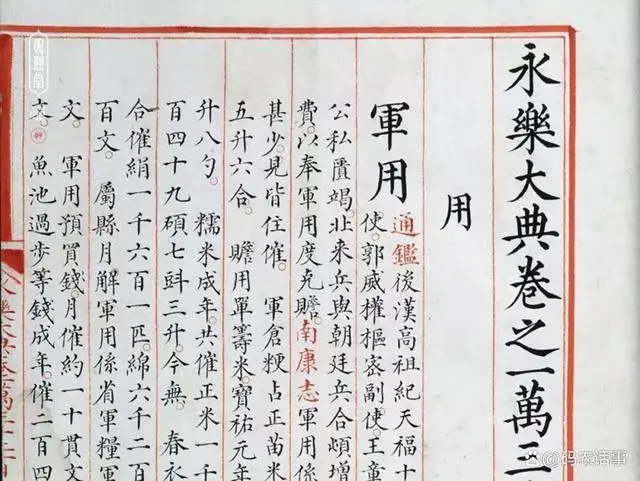 永樂大典卷之一萬三
用
軍用
通鑑後漢高祖紀天福十
使。郭威權樞密副使。王章
公私匱竭。北来兵與朝廷兵合。頃增
費。以奉軍用度克贍。南康志軍用係
甚少。見皆住催。 軍倉粳占正苗米
五升六合。 贍用單籌米。寶祐元年
升八勺。 糯米成年。共催正米一千
百四十九碩七㪷三升。今無。 春衣
合催絹一千六百一匹。綿六千二百
百文。 屬縣月解軍用係省軍糧軍
文。 軍用預買錢。月催約一十貫文
文。 魚池過步等錢成年。催二百四
永樂大典卷
@码农话事